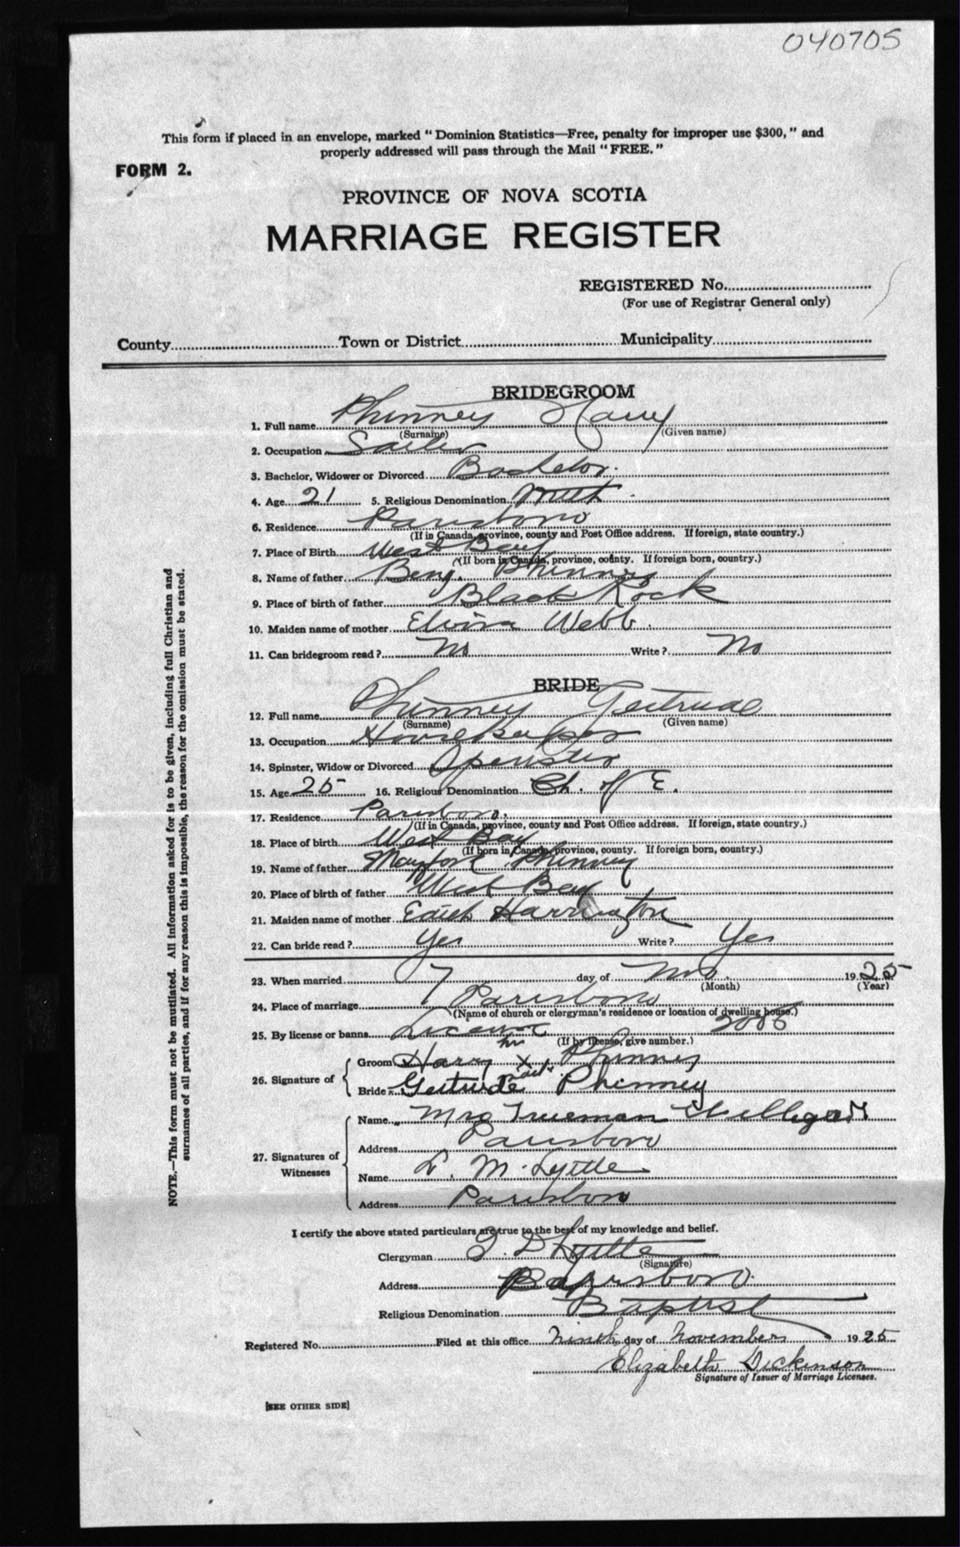 040705
This form if placed in an envelope, marked "Dominion Statistics—Free, penalty for improper use $300," and
properly addressed will pass through the Mail "FREE."
FORM 2.
PROVINCE OF NOVA SCOTIA
MARRIAGE REGISTER
REGISTERED No.
(For use of Registrar General only)
County Town or District Municipality
BRIDEGROOM
1. Full name Phinney Harry
(Surname) (Given name)
2. Occupation Sailor
3. Bachelor, Widower or Divorced Bachelor
4. Age 21 5. Religious Denomination Meth
6. Residence Parrsboro
(If in Canada, province, county and Post Office address. If foreign, state country.)
7. Place of Birth West Bay
(If born in Canada, province, county. If foreign born, country.)
8. Name of father Benj. Phinney
9. Place of birth of father Black Rock
10. Maiden name of mother Elvira Webb
11. Can bridegroom read? No Write? No
BRIDE
12. Full name Phinney Gertrude
(Surname) (Given name)
13. Occupation Housekeeper
14. Spinster, Widow or Divorced Spinster
15. Age 25 16. Religious Denomination Ch. of E.
17. Residence Parrsboro
(If in Canada, province, county and Post Office address. If foreign, state country.)
18. Place of birth West Bay
(If born in Canada, province, county. If foreign born, country.)
19. Name of father Phinney
20. Place of birth of father West Bay
21. Maiden name of mother Edith Harrington
22. Can bride read? Yes Write? Yes
23. When married 7 day of Nov. 1925
(Month) (Year)
24. Place of marriage Parrsboro
(Name of church or clergyman's residence or location of dwelling house.)
25. By license or banns License
(If by license, give number.)
26. Signature of
Groom Harry his x mark Phinney
Bride Gertrude Phinney
27. Signatures of Witnesses
Name Mrs Trueman
Address Parrsboro
Name L. M. Lyttle
Address Parrsboro
I certify the above stated particulars are true to the best of my knowledge and belief.
Clergyman Lyttle
(Signature)
Address Parrsboro
Religious Denomination Baptist
Registered No. Filed at this office Ninth day of November 1925
Elizabeth Dickinson
Signature of Issuer of Marriage Licenses.
[SEE OTHER SIDE]
NOTE.—This form must not be mutilated. All information asked for is to be given, including full Christian and
surnames of all parties, and if for any reason this is impossible, the reason for the omission must be stated.